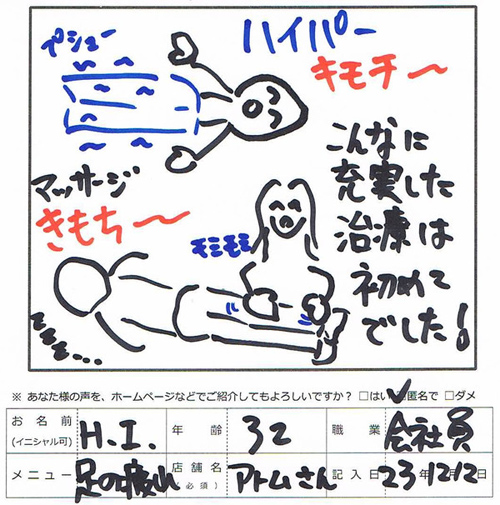 ハイパー
キモチ〜
プシュー
こんなに
充実した
治療は
初めて
でした!
マッサージ
きもち〜
モミモミ
zzzz...
※ あなた様の声を、ホームページなどでご紹介してもよろしいですか? □はい ☑匿名で □ダメ
お名前 (イニシャル可) H.I. 年齢 32 職業 会社員
メニュー 足の疲れ 店舗名 (必須) アトムさん 記入日 23年12月12